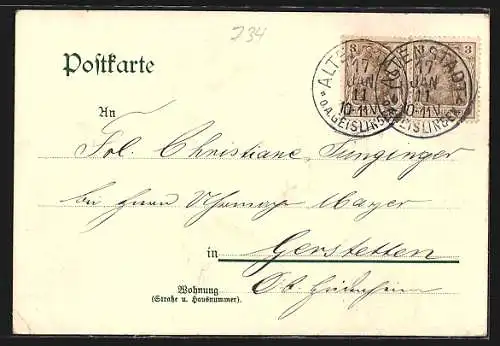 J34
Postkarte
3 3
ALTENSTADT
17
JAN
11
10-11V.
* O.A. GEISLINGEN
ALTENSTADT
17
JAN
11
10-11V.
GEISLINGEN
An
Frl. Christiane Junginger
bei Herrn Mayer
in Gerstetten
Wohnung
(Straße u. Hausnummer).
O.A. Heidenheim